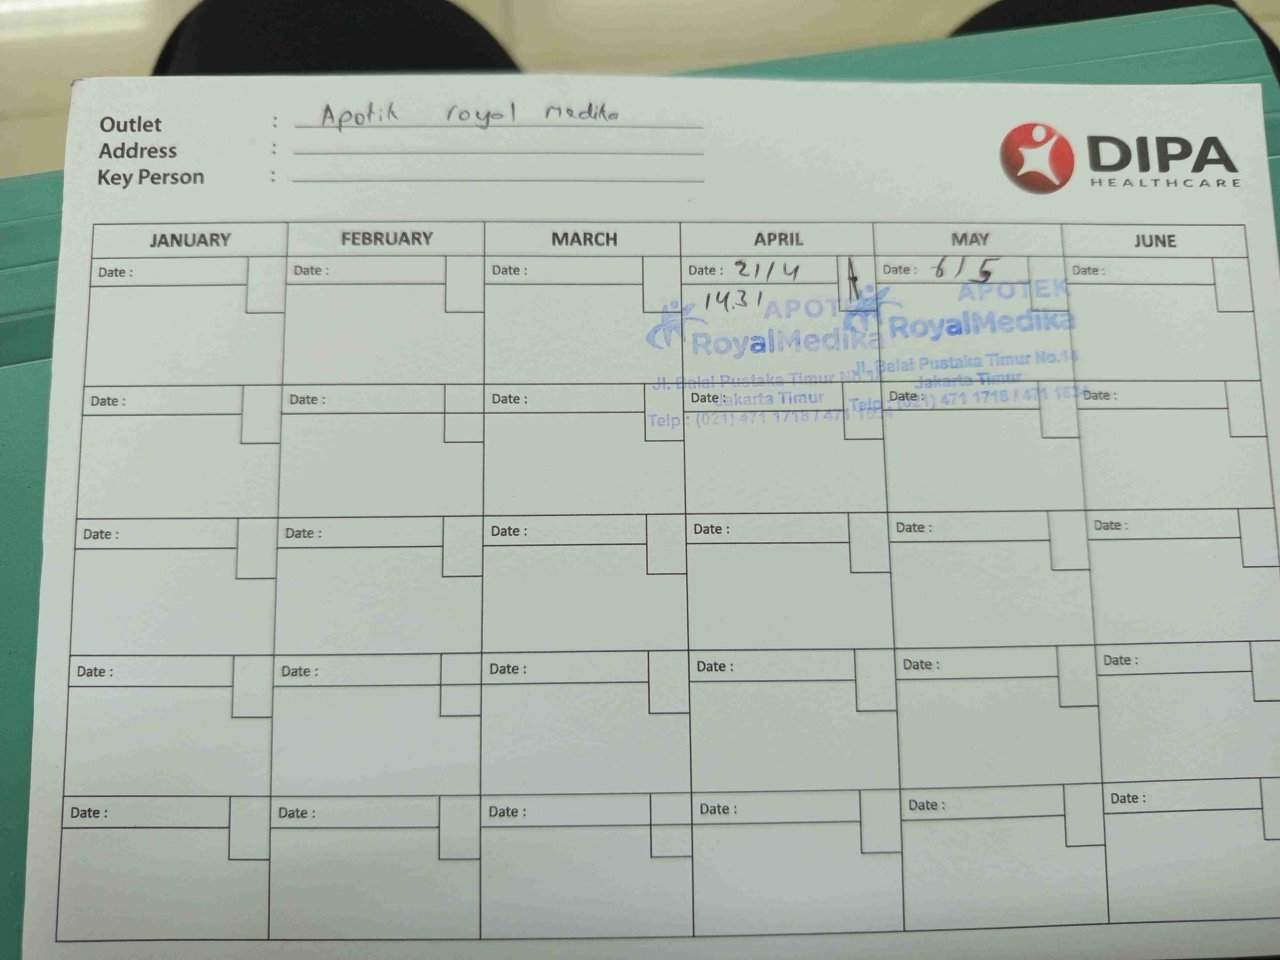 Outlet : Apotik royal medika
Address :
Key Person :
DIPA
HEALTHCARE
JANUARY FEBRUARY MARCH APRIL MAY JUNE
Date : Date : Date : Date : 21/4 Date : 6/5 Date :
14.31
APOTEK
RoyalMedika
Jl. Balai Pustaka Timur No.14
Jakarta Timur
Telp : (021) 471 1718 / 471
APOTEK
RoyalMedika
Jl. Balai Pustaka Timur No.14
Jakarta Timur
Telp : (021) 471 1718 / 471
Date : Date : Date : Date : Date : Date :
Date : Date : Date : Date : Date : Date :
Date : Date : Date : Date : Date : Date :
Date : Date : Date : Date : Date : Date :